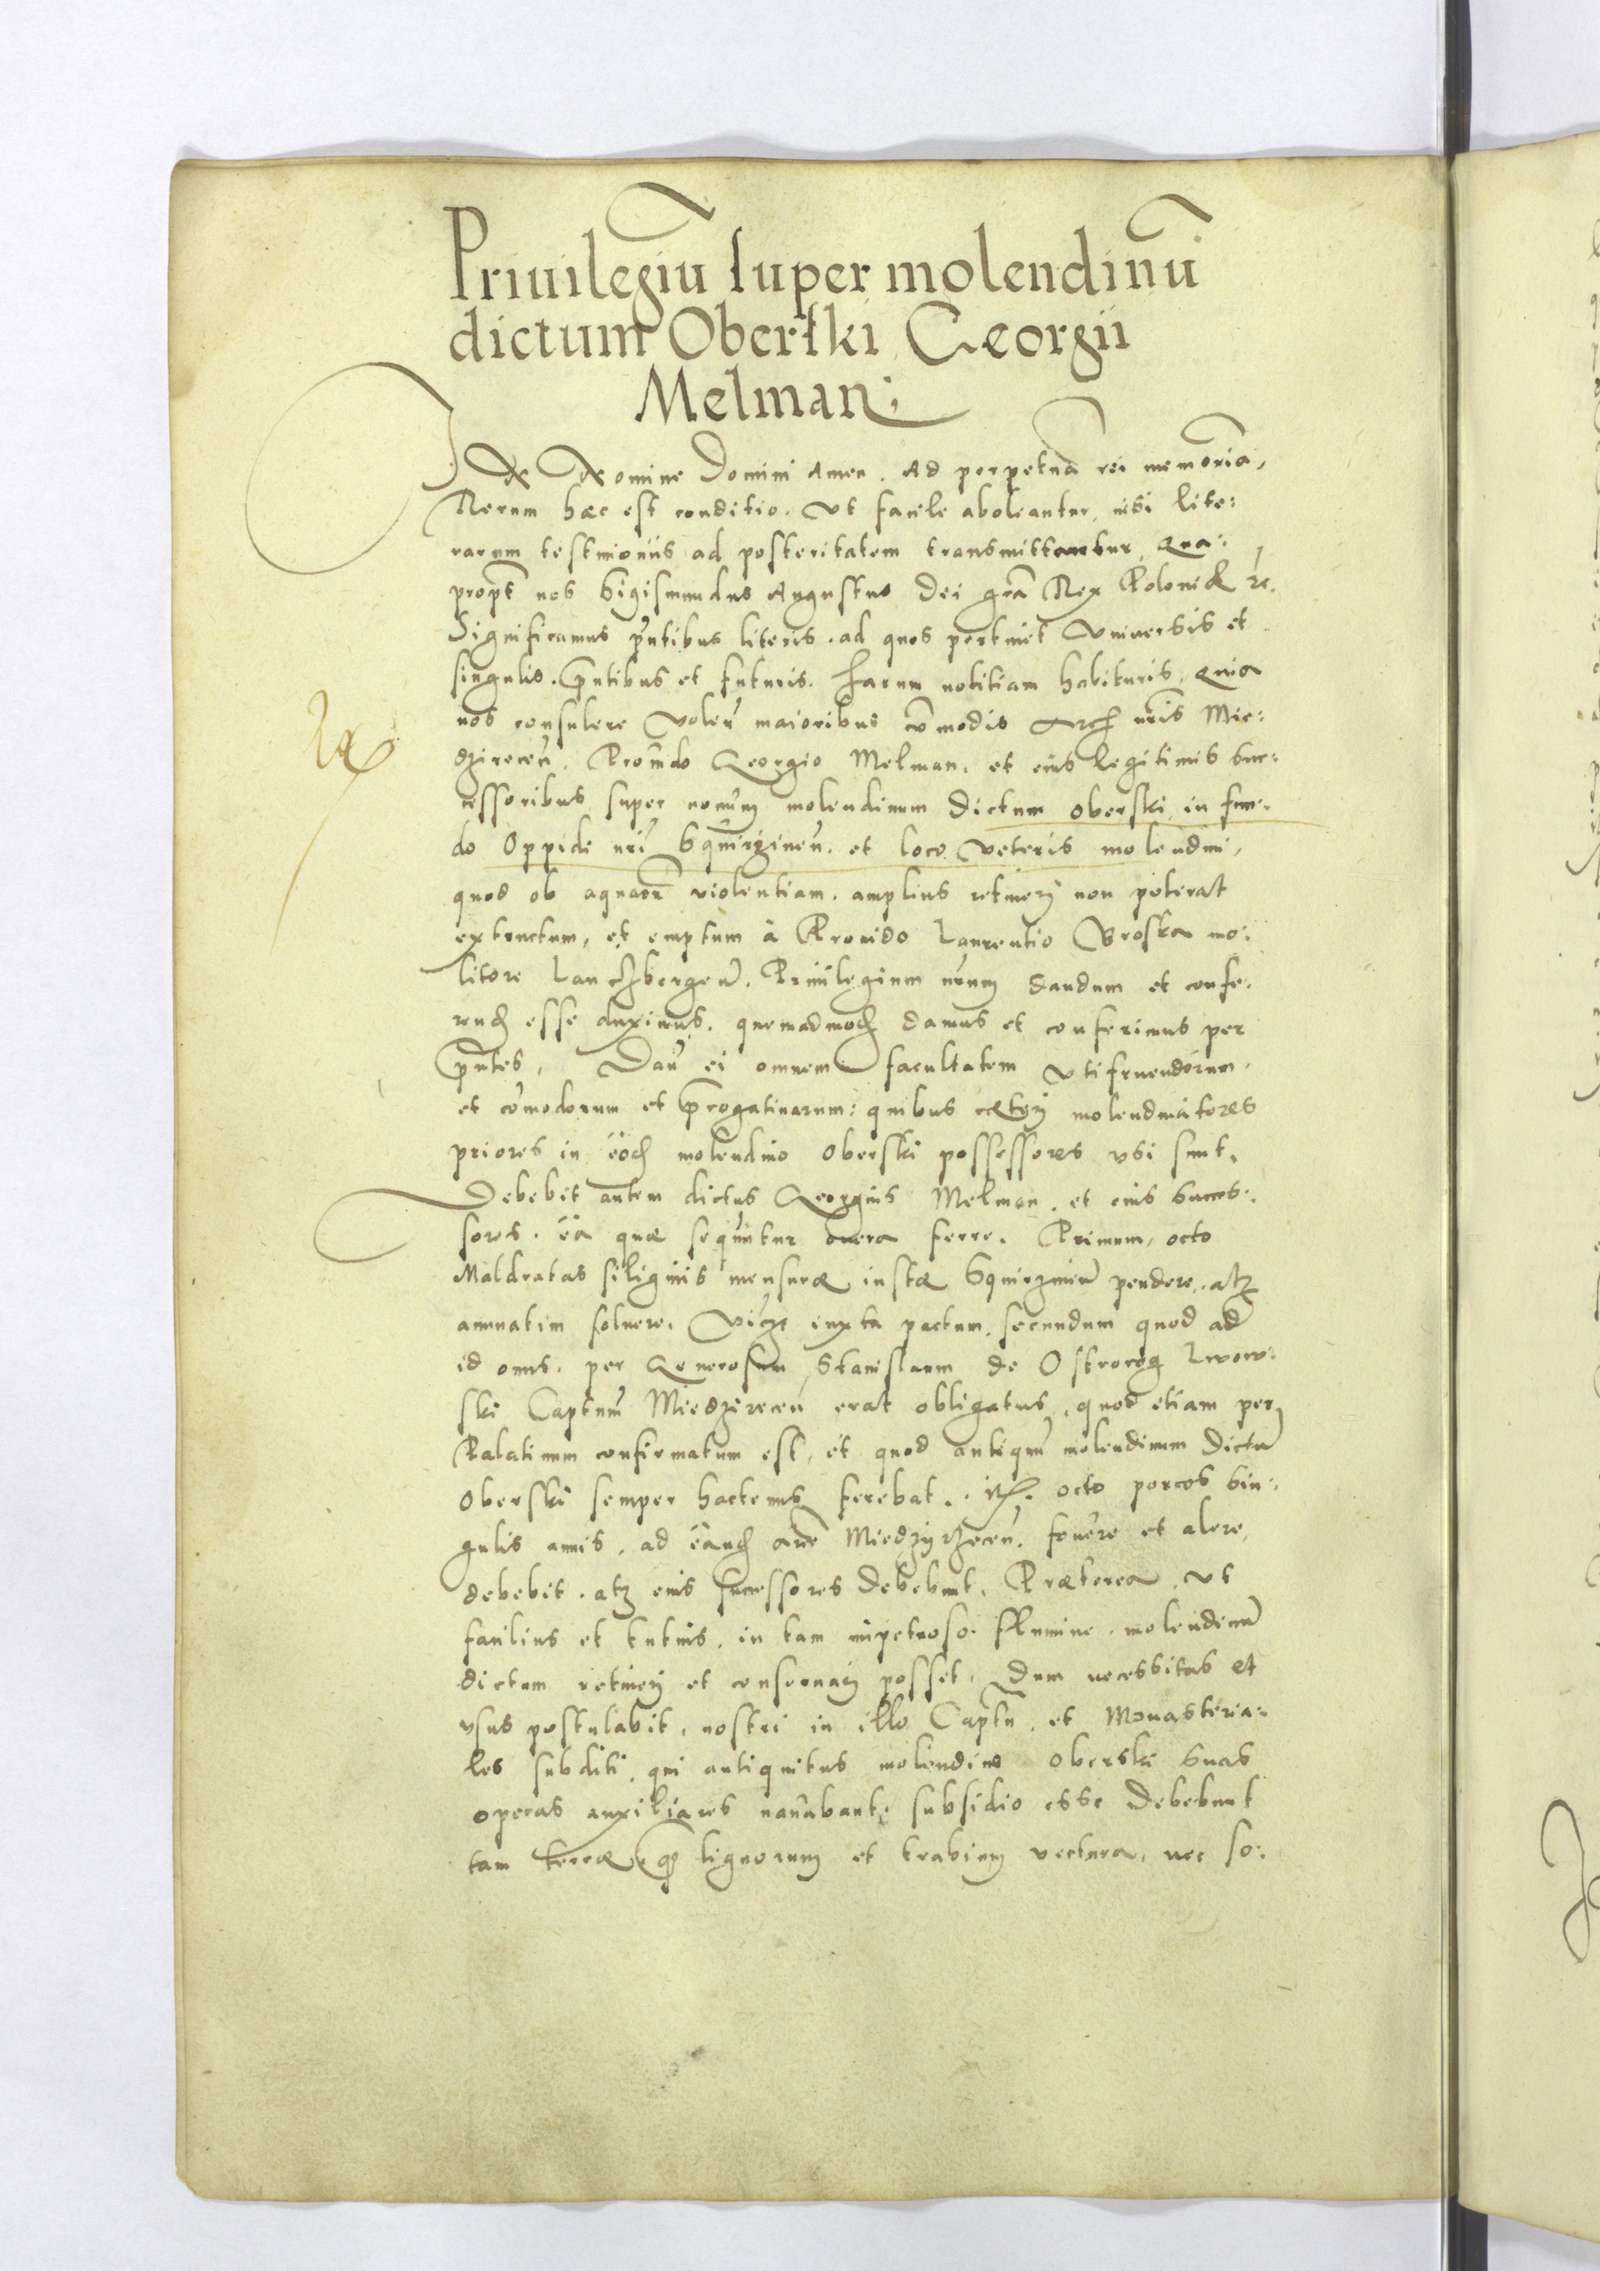 Priuilegiū super molendinū
dictum Oberski Georgii
Melman.
IN Nomine Domini Amen. Ad perpetuā rei memoriā,
Rerum hæc est conditio. Vt facile aboleantur, nisi lite:
rarum testimoniis ad posteritatem transmittantur, Qua:
propt nos Sigismundus Augustus Dei grā Rex Poloniæ zc.
Significamus pñtibus literis. ad quos pertinet Vniuersis et
singulis. Pñtibus et futuris. Harum notitiam habituris, Quia
nos consulere Volen̄ maioribus cōmodis nr̄is Mie:
dzirecen̄. Prouido Georgio Melman. et eius legitimis suc:
cessoribus super nouum molendinum dictum oberski in fun:
do Oppide nr̄i Squirzinen̄. et loco veteris molendini,
quod ob aquarū violentiam. amplius retineri non poterat
extructum, et emptum à Prouido Laurentio Broska mo:
litore Lanczbergen̄. Priuilegium nr̄um dandum et confe:
rend esse duximus. quemadmod damus et conferimus per
Pn̄tes, Dan̄ ei omnem facultatem vtifruendorum.
et cōmodorum et Prerogatiuarum: quibus cæteri molendinatores
priores in eod molendino Oberski possessores vsi sunt.
Debebit autem dictus Georgius Melman. et eius Succes:
sores. ea quæ sequuntur onera ferre. Primum, octo
Maldratas siliginis mensuræ iustæ Squirzinen̄ pendere, atq
annuatim soluere. iuxta pactum. secundum quod ad
id onus. per Generosum Stanislaum de Ostrorog Lwow:
ski Captum̄ Miedzirecen̄ erat obligatus, quod etiam per
Palatinum confirmatum est, et quod antiqum molendinum dictū
Oberski semper hactenus ferebat. It. octo porcos sin:
gulis annis. ad eand arcē Miedzyrzecen̄. fouere et alere,
debebit. atq eius successores debebunt. Præterea, vt
facilius et tutius. in tam impetuoso. fflumine. molendinū
dictum retineri et conseruari posset. Dum necessitas et
vsus postulabit, nostri in illo Captu. et Monasteria:
les subditi, qui antiquitus molendino Oberski suas
operas auxiliares nauabant, subsidio esse debebunt
tam terræ q lignorum et trabium vectura, nec so: